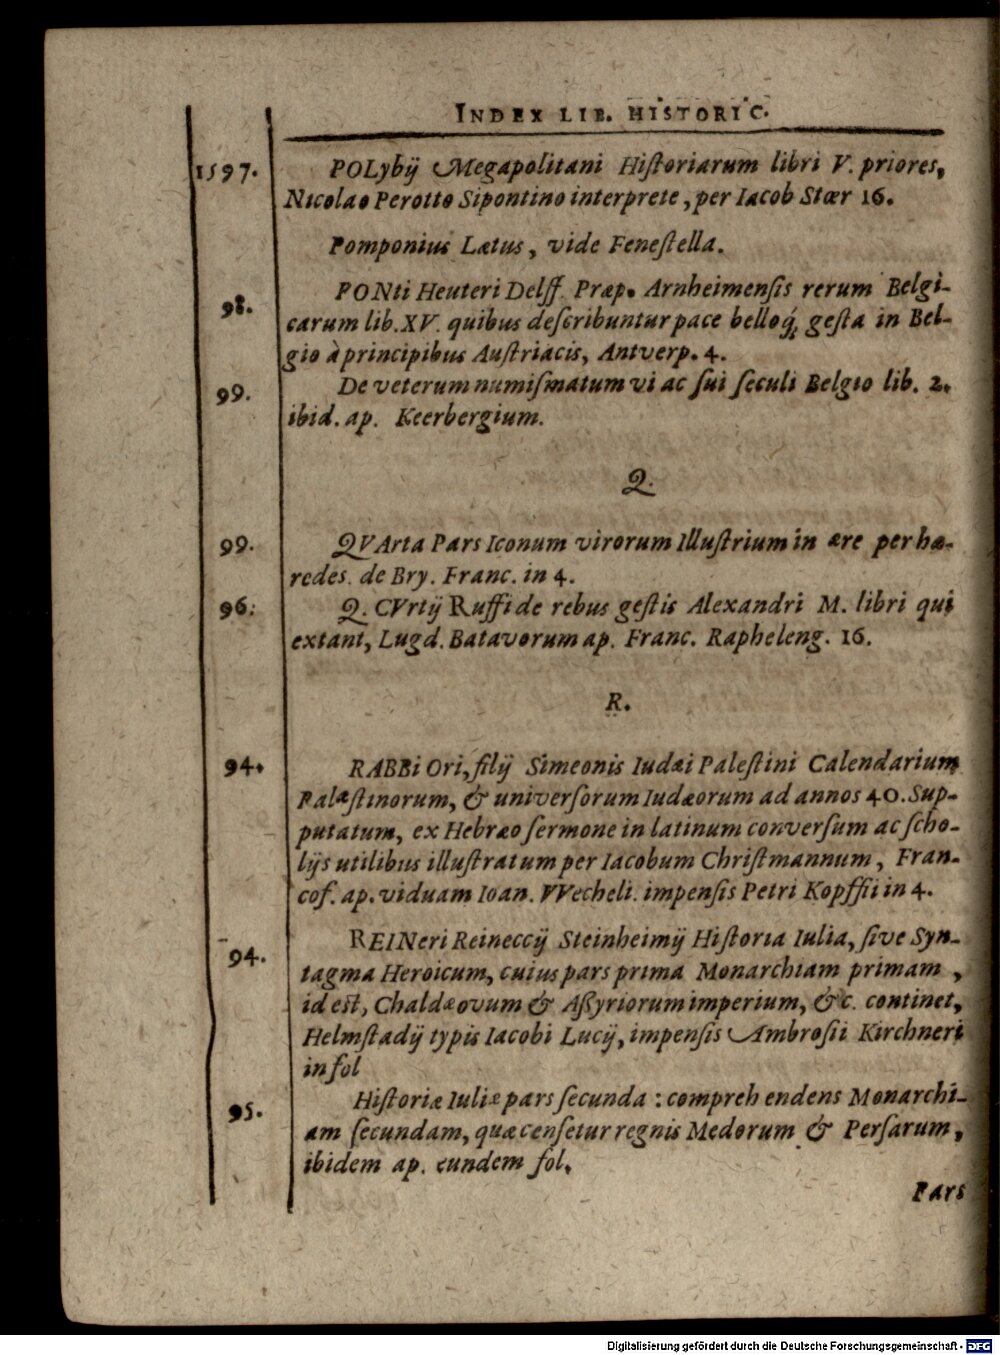 INDEX LIB. HISTORIC.
1597. POLybij Megapolitani Hiſtoriarum libri V. priores,
Nicolao Perotto Sipontino interprete, per Iacob Stœr 16.
Pomponius Lætus, vide Feneſtella.
98. PONti Heuteri Delff. Præp. Arnheimenſis rerum Belgi-
carum lib. XV. quibus deſcribuntur pace belloq́; geſta in Bel-
gio à principibus Auſtriacis, Antverp. 4.
99. De veterum numiſmatum vi ac ſui ſeculi Belgio lib. 2.
ibid. ap. Keerbergium.
Q.
99. QVArta Pars Iconum virorum Illuſtrium in ære per hæ-
redes. de Bry. Franc. in 4.
96. Q. CVrtij Ruffi de rebus geſtis Alexandri M. libri qui
extant, Lugd. Batavorum ap. Franc. Rapheleng. 16.
R.
94. RABBi Ori, filij Simeonis Iudæi Paleſtini Calendarium
Palæſtinorum, & univerſorum Iudæorum ad annos 40. Sup-
putatum, ex Hebræo ſermone in latinum converſum ac ſcho-
lijs utilibus illuſtratum per Iacobum Chriſtmannum, Fran-
cof. ap. viduam Ioan. VVecheli. impenſis Petri Kopffii in 4.
94. REINeri Reineccij Steinheimij Hiſtoria Iulia, ſive Syn-
tagma Heroicum, cuius pars prima Monarchiam primam,
id eſt, Chaldæovum & Aßyriorum imperium, &c. continet,
Helmſtadij typis Iacobi Lucij, impenſis Ambroſii Kirchneri
in fol
95. Hiſtoriæ Iuliæ pars ſecunda : compreh endens Monarchi-
am ſecundam, quæ cenſetur regnis Medorum & Perſarum,
ibidem ap. eundem fol.
Pars
Digitalisierung gefördert durch die Deutsche Forschungsgemeinschaft - DFG